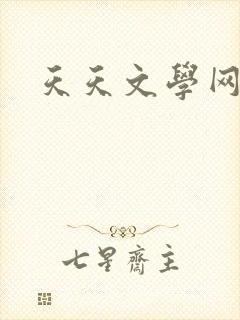 天天文學网
七星齋主